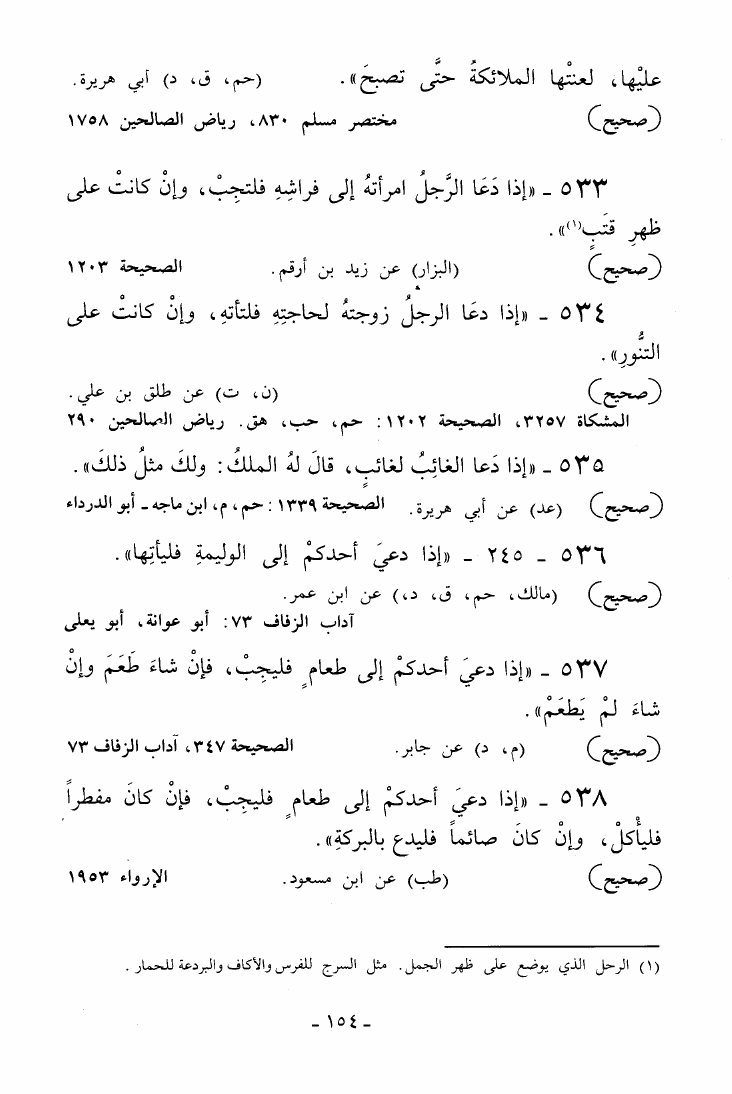 عليْها، لعنتْها الملائكةُ حتَّى تصبحَ». (حم، ق، د) أبي هريرة.
(صحيح) مختصر مسلم ٨٣٠، رياض الصالحين ١٧٥٨
٥٣٣ ـ «إذا دَعَا الرَّجلُ امرأتهُ إلى فراشِهِ فلتجِبْ، وإنْ كانتْ على
ظهرِ قتَبٍ(١)».
(صحيح) (البزار) عن زيد بن أرقم. الصحيحة ١٢٠٣
٥٣٤ ـ «إذا دعَا الرجلُ زوجتهُ لحاجتِهِ فلتأتهِ، وإنْ كانتْ على
التنُّورِ».
(صحيح) (ن، ت) عن طلق بن علي.
المشكاة ٣٢٥٧، الصحيحة ١٢٠٢: حم، حب، هق. رياض الصالحين ٢٩٠
٥٣٥ ـ «إذا دَعا الغائِبُ لغائبٍ، قالَ لهُ الملكُ: ولكَ مثلُ ذلكَ».
(صحيح) (عد) عن أبي هريرة. الصحيحة ١٣٣٩: حم، م، ابن ماجه ـ أبو الدرداء
٥٣٦ ـ ٢٤٥ ـ «إذا دعيَ أحدكمْ إلى الوليمةِ فليأتِها».
(صحيح) (مالك، حم، ق، د،) عن ابن عمر.
آداب الزفاف ٧٣: أبو عوانة، أبو يعلى
٥٣٧ ـ «إذا دعيَ أحدكمْ إلى طعامٍ فليجِبْ، فإنْ شاءَ طَعَمَ وإنْ
شاءَ لمْ يَطعَمْ».
(صحيح) (م، د) عن جابر. الصحيحة ٣٤٧، آداب الزفاف ٧٣
٥٣٨ ـ «إذا دعيَ أحدكمْ إلى طعامٍ فليجِبْ، فإنْ كانَ مفطراً
فليأْكلْ، وإنْ كانَ صائماً فليدع بالبركةِ».
(صحيح) (طب) عن ابن مسعود. الإرواء ١٩٥٣
(١) الرحل الذي يوضع على ظهر الجمل. مثل السرج للفرس والأكاف والبردعة للحمار.
ـ ١٥٤ ـ